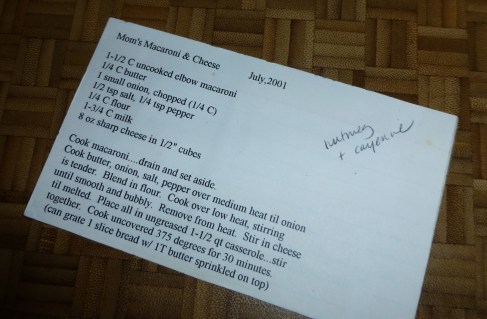 Mom's Macaroni & Cheese
July,2001
1-1/2 C uncooked elbow macaroni
1/4 C butter
1 small onion, chopped (1/4 C)
1/2 tsp salt, 1/4 tsp pepper
1/4 C flour
1-3/4 C milk
8 oz sharp cheese in 1/2" cubes
nutmeg
+ cayenne
Cook macaroni....drain and set aside.
Cook butter, onion, salt, pepper over medium heat til onion
is tender. Blend in flour. Cook over low heat, stirring
until smooth and bubbly. Remove from heat. Stir in cheese
til melted. Place all in ungreased 1-1/2 qt casserole...stir
together. Cook uncovered 375 degrees for 30 minutes.
(can grate 1 slice bread w/ 1T butter sprinkled on top)